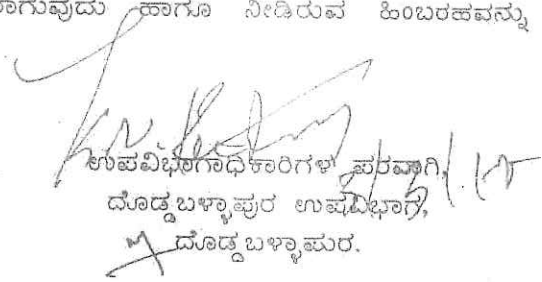 ಹಾಗೂ ನೀಡಿರುವ ಹಿಂಬರಹವನ್ನು
ಉಪವಿಭಾಗಾಧಿಕಾರಿಗಳ ಪರವಾಗಿ,
ದೊಡ್ಡಬಳ್ಳಾಪುರ ಉಪವಿಭಾಗ,
ದೊಡ್ಡಬಳ್ಳಾಪುರ.